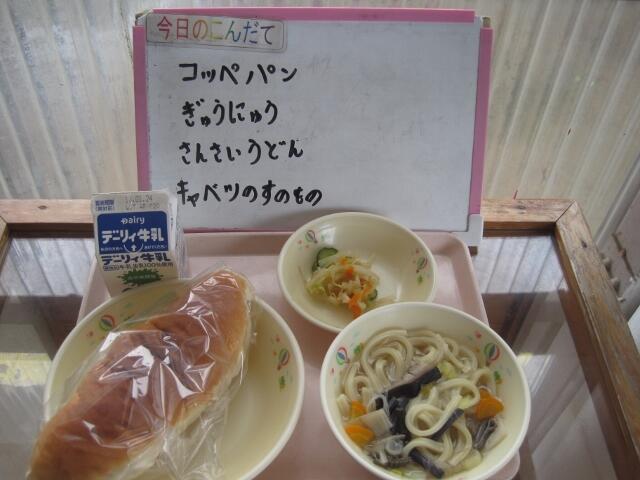 今日のこんだて
コッペパン
ぎゅうにゅう
さんさいうどん
キャベツのすのもの
Dairy
デーリィ牛乳
デーリィ牛乳